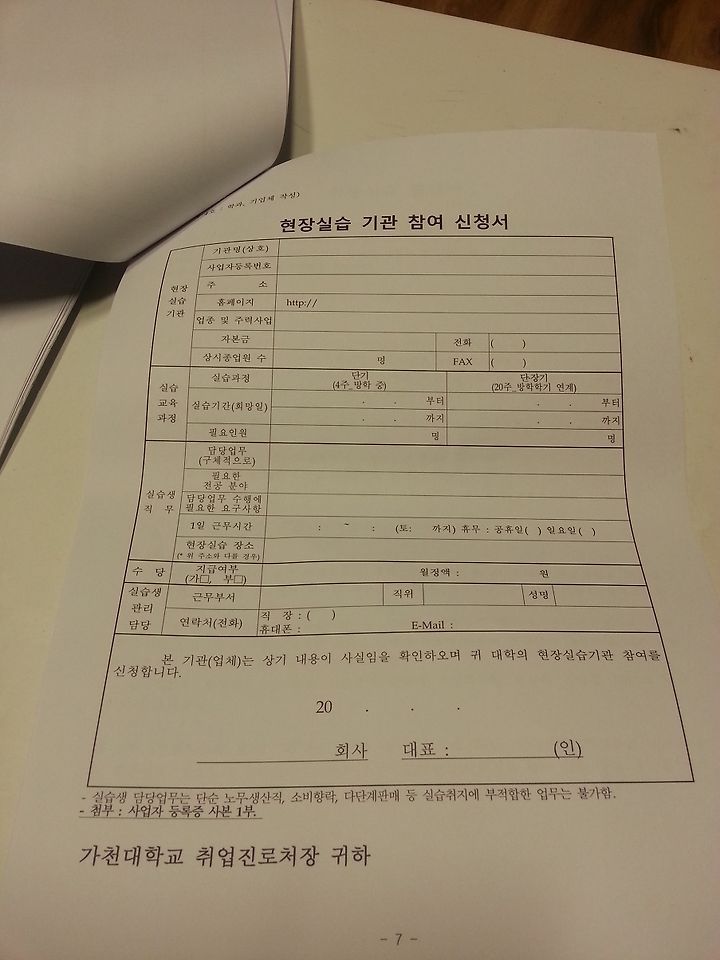 학과, 기업체 작성)
현장실습 기관 참여 신청서
현장 실습 기관
기관명(상호)
사업자등록번호
주 소
홈페이지 http://
업종 및 주력사업
자본금 전화 ( )
상시종업원 수 명 FAX ( )
실습 교육 과정
실습과정 단기 (4주_방학 중) 단·장기 (20주_방학학기 연계)
실습기간(희망일) . . 부터 . . 부터
. . 까지 . . 까지
필요인원 명 명
실습생 직 무
담당업무 (구체적으로)
필요한 전공 분야
담당업무 수행에 필요한 요구사항
1일 근무시간 : ~ : (토: 까지) 휴무 : 공휴일( ) 일요일( )
현장실습 장소 (* 위 주소와 다를 경우)
수 당 지급여부 (가□, 부□) 월정액 : 원
실습생 관리 담당
근무부서 직위 성명
연락처(전화) 직 장 : ( )
휴대폰 : E-Mail :
본 기관(업체)는 상기 내용이 사실임을 확인하오며 귀 대학의 현장실습기관 참여를
신청합니다.
20 . . .
회사 대표 : (인)
- 실습생 담당업무는 단순 노무생산직, 소비향락, 다단계판매 등 실습취지에 부적합한 업무는 불가함.
- 첨부 : 사업자 등록증 사본 1부.
가천대학교 취업진로처장 귀하
- 7 -